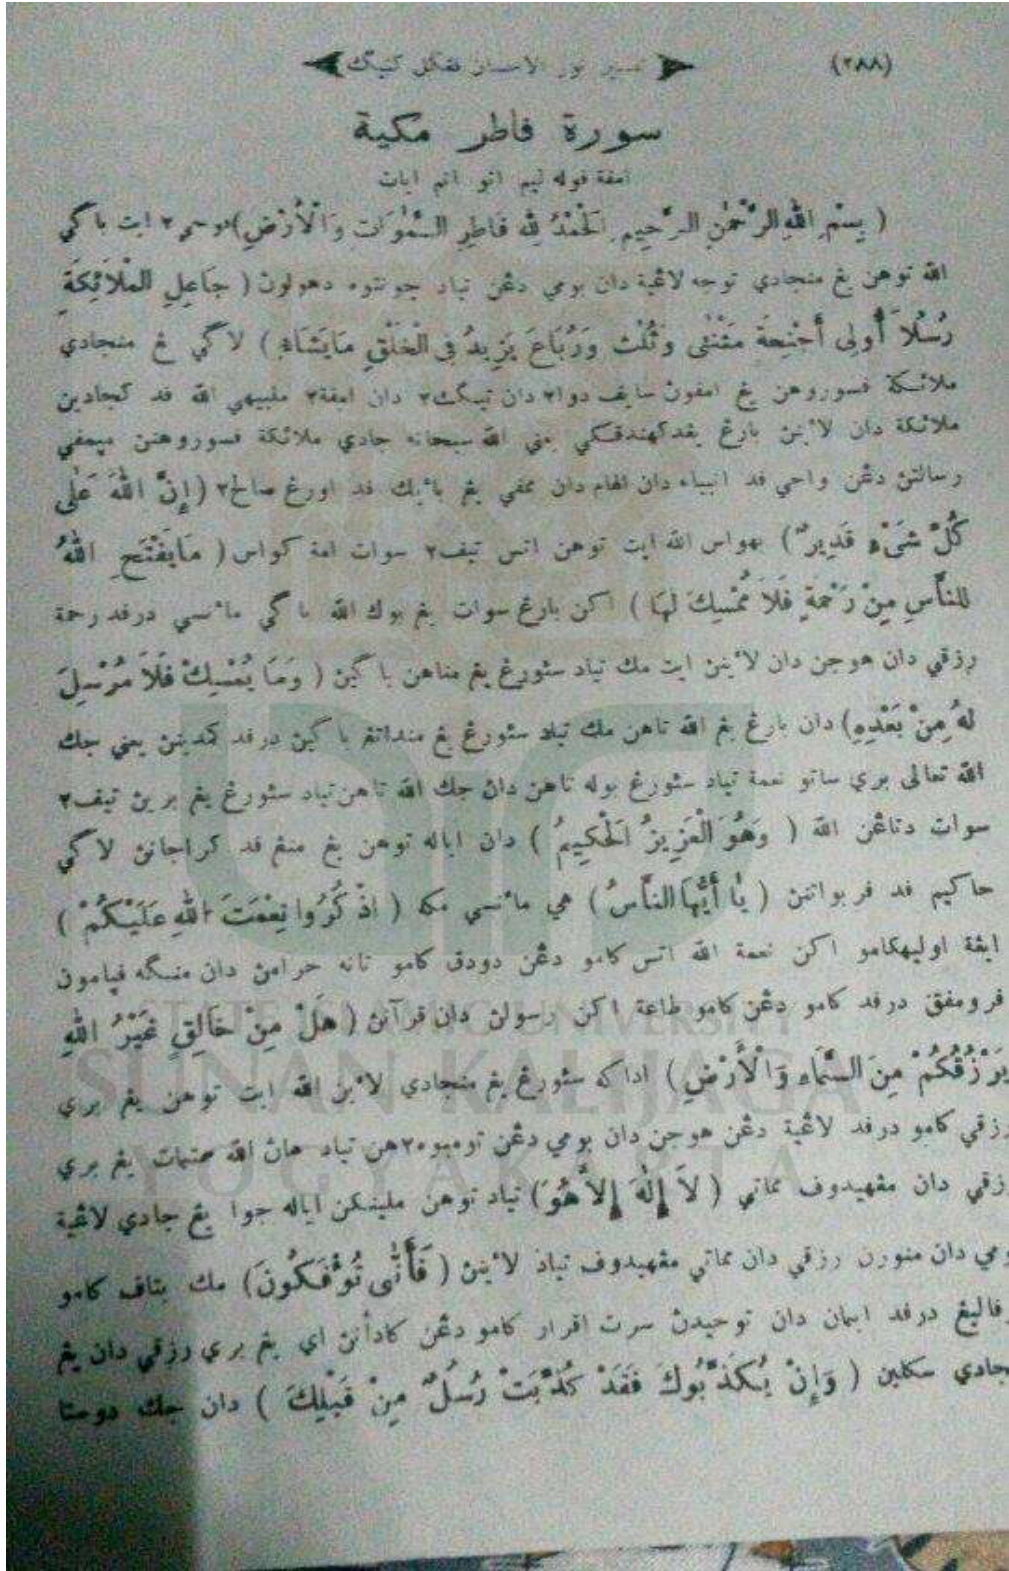 (٢٨٨) تفسير نور الاحسان فڠكل كتيݢ
سورة فاطر مكية
امفة فوله ليم اتو انم ايات
( بِسْمِ اللهِ الرَّحْمٰنِ الرَّحِيمِ اَلْحَمْدُ لِلّٰهِ فَاطِرِ السَّمٰوَاتِ وَالْأَرْضِ) ڤوجي٢ ايت باكي
الله توهن يغ منجادي توجه لاڠية دان بومي دڠن تياد چونتوه دهولون ( جَاعِلِ الْمَلَائِكَةِ
رُسُلًا أُولِى أَجْنِحَةٍ مَثْنٰى وَثُلٰثَ وَرُبَاعَ يَزِيدُ فِى الْخَلْقِ مَايَشَاءُ ) لاكي يغ منجادي
ملائكة فسوروهن يغ امفون سايف دوا٢ دان تيݢ٢ دان امفة٢ ملبيهي الله فد كجادين
ملائكة دان لائينن بارغ يغدكهندقكي يعني الله سبحانه جادي ملائكة فسوروهنن ميمفي
رسالتن دڠن واحي فد انبياء دان الهام دان ممفي يغ بائيك فد اورغ صالح٢ (إِنَّ اللهَ عَلٰى
كُلِّ شَىْءٍ قَدِيرٌ ) بهواس الله ايت توهن اتس تيف٢ سوات امة كواس ( مَايَفْتَحِ اللهُ
لِلنَّاسِ مِنْ رَحْمَةٍ فَلَا مُمْسِكَ لَهَا ) اكن بارغ سوات يغ بوك الله باكي مائسي درفد رحمة
رزقي دان هوجن دان لائينن ايت مك تياد سئورغ يغ مناهن باكين ( وَمَا يُمْسِكْ فَلَا مُرْسِلَ
لَهُ مِنْ بَعْدِهِ) دان بارغ يغ الله تاهن مك تياد سئورغ يغ منداتغ باكين درفد كمدينن يعني جك
الله تعالى بري ساتو نعمة تياد سئورغ بوله تاهن دان جك الله تاهن تياد سئورغ يغ برين تيف٢
سوات دتاڠن الله ( وَهُوَ الْعَزِيزُ الْحَكِيمُ ) دان اياله توهن يغ منغ فد كراجانن لاكي
حاكيم فد فربواتنن ( يَٰا أَيُّهَا النَّاسُ ) هي مائسي مكه ( اذْكُرُوا نِعْمَتَ اللهِ عَلَيْكُمْ )
ايڠة اوليهكامو اكن نعمة الله اتس كامو دڠن دودق كامو تانه حرامن دان منݢه فيامون
فرومفق درفد كامو دڠن كامو طاعة اكن رسولن دان قرآنن ( هَلْ مِنْ خَالِقٍ غَيْرُ اللهِ
يَرْزُقُكُمْ مِنَ السَّمَاءِ وَالْأَرْضِ ) اداكه سئورغ يغ منجادي لائين الله ايت توهن يغ بري
رزقي كامو درفد لاڠية دڠن هوجن دان بومي دڠن تومبوه٢هن تياد هان الله يغ بري
رزقي دان مڠهيدوف مماتي ( لَا إِلٰهَ إِلَّا هُوَ ) تياد توهن ملينكن اياله جوا يغ جادي لاڠية
ومي دان منورن رزقي دان مماتي مڠهيدوف تياد لائينن ( فَأَنّٰى تُؤْفَكُونَ) مك بتاف كامو
رفاليغ درفد ايمان دان توحيدن سرت اقرار كامو دڠن كادأنن اي يغ بري رزقي دان يغ
جادي سكلين ( وَإِنْ يُكَذِّبُوكَ فَقَدْ كُذِّبَتْ رُسُلٌ مِنْ قَبْلِكَ ) دان جك دوستا
STATE ISLAMIC UNIVERSITY
SUNAN KALIJAGA
YOGYAKARTA